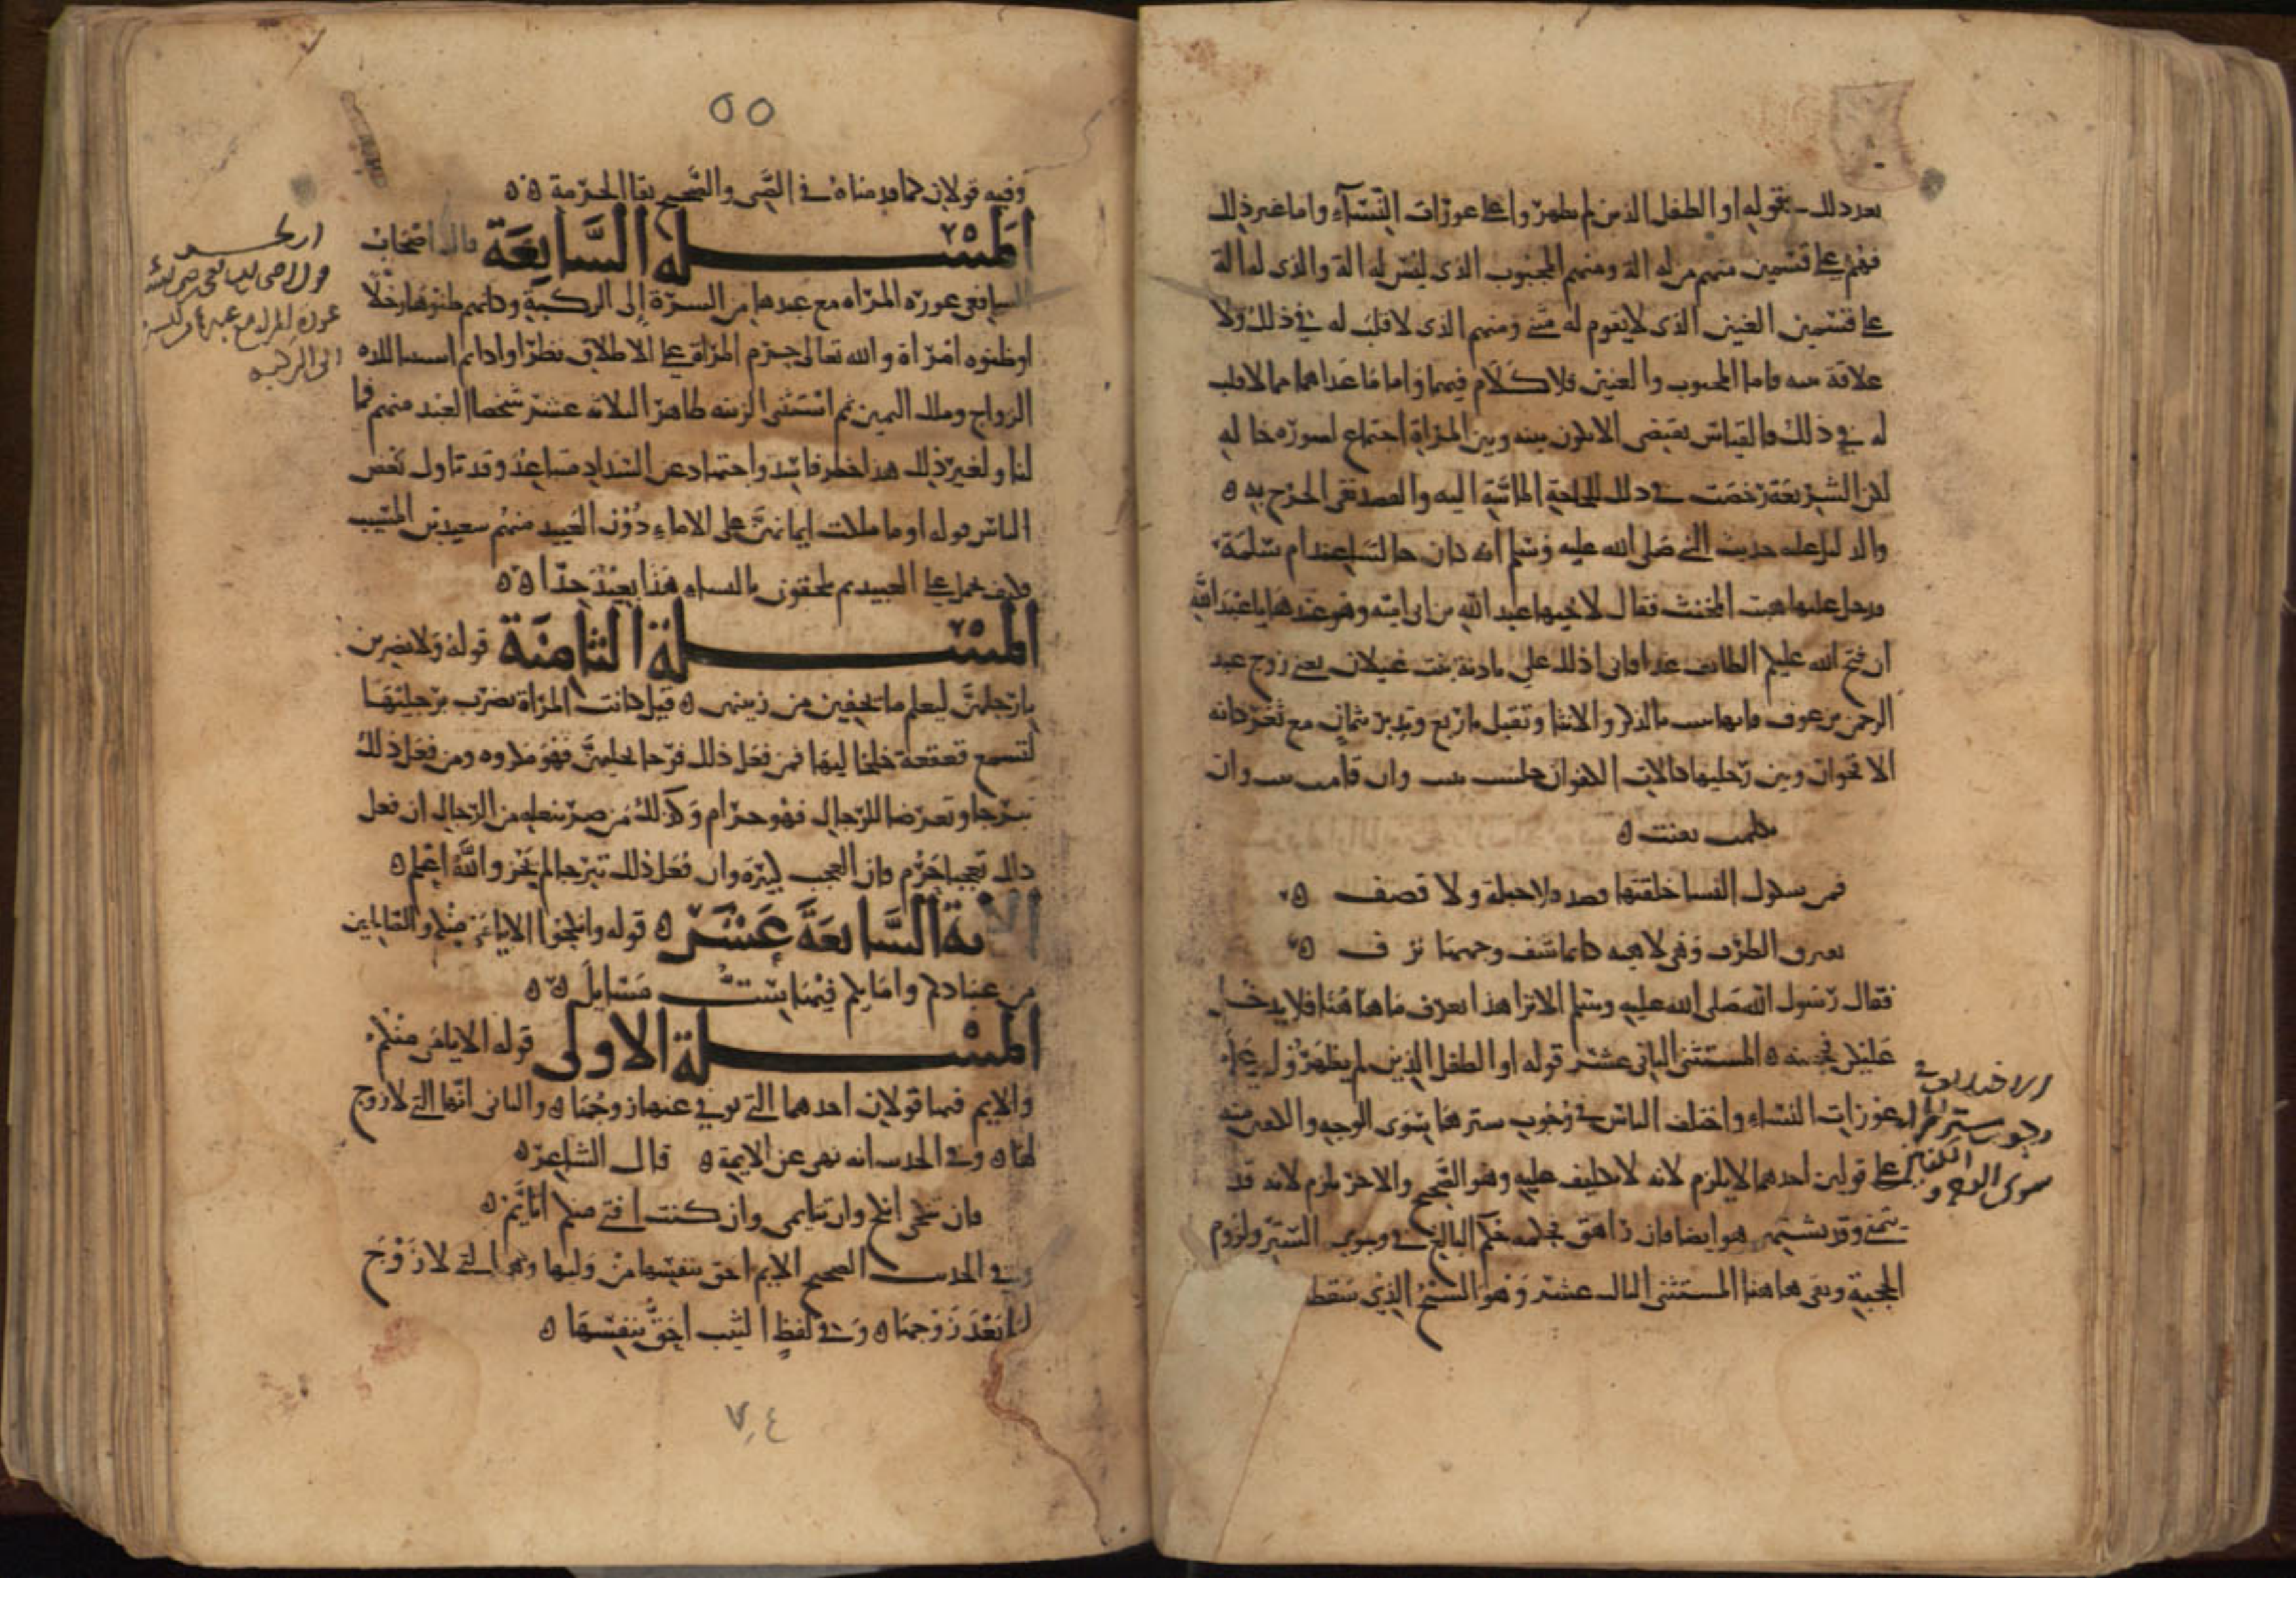 بعد ذلك بقوله او الطفل الذين لم يظهروا على عورات النساء واما غير ذلك
فهم على قسمين منهم من له الة ومنهم المجبوب الذي ليس له الة والذي له الة
على قسمين العنين الذي لا يقوم له شئ ومنهم الذي لا قلب له في ذلك ولا
علاقة منه فاما المجبوب والعنين فلا كلام فيهما واما ما عداهما مما لا قلب
له في ذلك فالقياس يقتضي الا يكون بينه وبين المراة اجتماع لصورة حاله
لكن الشريعة رخصت في ذلك للحاجة الماسة اليه ولقصد نفي الحرج به
والدليل عليه حديث النبي صلى الله عليه وسلم انه كان جالسا عند ام سلمة
فدخل عليها هيت المخنث فقال لاخيها عبد الله بن ابي امية وهو عندها يا عبد الله
ان فتح الله عليكم الطائف غدا فاني ادلك على بادنة بنت غيلان يعني زوج عبد
الرحمن بن عوف فانها تقبل باربع وتدبر بثمان مع ثغر كانه
الاقحوان وبين رجليها كالاناء ان جلست تبنت وان قامت تثنت وان
تكلمت تغنت
بين شكول النسا خلقتها قصد فلا جبلة ولا قضف
تغترق الطرف وهي لاهية كانما شف وجهها نزف
فقال رسول الله صلى الله عليه وسلم الا ارى هذا يعرف ما هاهنا فلا يدخل
عليكن فحجبنه المستثنى الثاني عشر قوله او الطفل الذين لم يظهروا على
عورات النساء واختلف الناس في وجوب سترها سوى الوجه والكفين منه
على قولين احدهما لا يلزم لانه لا تكليف عليه وهو الصحيح والاخر يلزم لانه قد
يشتهي وقد تشتهي هو ايضا فان راهق فحكمه حكم البالغ في وجوب الستر ولزوم
الحجبة وبقي هاهنا المستثنى الثالث عشر وهو الشيخ الذي سقط
الاختلاف في
وجوب ستر المراة
سوى الوجه والكفين
٥٥
وفيه قولان كما قدمناه في الصبي والصحيح بقا الحرمة
المسئلة السابعة قال اصحاب
الشافعي عورة المراة مع عبدها من السرة الى الركبة وكانهم ظنوها رجلا
او ظنوه امراة والله تعالى حرم المراة على الاطلاق نظرا ولذة ثم استثنى اللذة
للازواج وملك اليمين ثم استثنى الزينة ظاهر لثلاثة عشر شخصا العبد منهم فما
لنا ولغير ذلك هذا نظر فاسد واجتهاد عن السداد متباعد وقد تاول بعض
الناس قوله او ما ملكت ايمانهن على الاماء دون العبيد منهم سعيد بن المسيب
فكيف يحمل على العبيد ثم يلحقون بالنساء هذا بعيد جدا
المسئلة الثامنة قوله ولا يضربن
بارجلهن ليعلم ما يخفين من زينتهن قيل كانت المراة تضرب برجليها
لتسمع قعقعة خلخاليها فمن فعل ذلك فرحا بحليهن فهو مكروه ومن فعل ذلك
تبرجا وتعرضا للرجال فهو حرام وكذلك من صر بنعله من الرجال ان فعل
ذلك تعجبا حرم فان العجب كبيرة وان فعل ذلك تبرجا لم يجز والله اعلم
الاية السابعة عشر قوله وانكحوا الايامى منكم والصالحين
من عبادكم وامايكم فيها ست مسايل
المسئلة الاولى قوله الايامى منكم
والايم فيها قولان احدهما التي توفي عنها زوجها والثاني انها التي لا زوج
لها وفي الحديث انه نهى عن الايمة قال الشاعر
فان تنكحي انكح وان تتايمي وان كنت افتى منكم اتايم
وفي الحديث الصحيح الايم احق بنفسها من وليها وهي التي لا زوج
لها بعد زوجها وفي لفظ الثيب احق بنفسها
قول اصحاب الشافعي رضي الله عنه
عورة المراة مع عبدها من السرة
الى الركبة